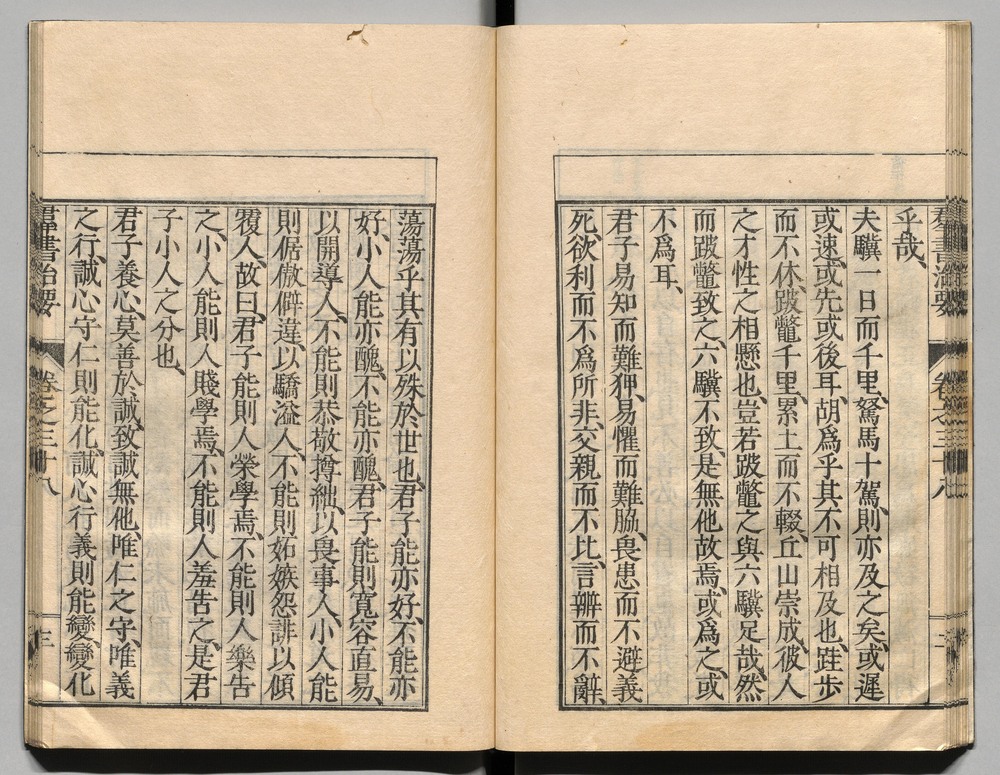 羣書治要 卷之三十八
乎哉、
夫驥一日而千里、駑馬十駕、則亦及之矣、或遲
或速、或先或後耳、胡爲乎其不可相及也、跬步
而不休、跛鼈千里、累土而不輟、丘山崇成、彼人
之才性之相懸也、豈若跛鼈之與六驥足哉、然
而跛鼈致之、六驥不致、是無他故焉、或爲之、或
不爲耳、
君子易知而難狎、易懼而難脇、畏患而不避義
死、欲利而不爲所非、交親而不比、言辯而不辭、
蕩蕩乎其有以殊於世也、君子能亦好、不能亦
好、小人能亦醜、不能亦醜、君子能則寬容直易、
以開導人、不能則恭敬撙絀、以畏事人、小人能
則倨傲僻違、以驕溢人、不能則妬嫉怨誹、以傾
覆人、故曰、君子能則人榮學焉、不能則人樂告
之、小人能則人賤學焉、不能則人羞告之、是君
子小人之分也、
君子養心、莫善於誠、致誠無他、唯仁之守、唯義
之行、誠心守仁則能化、誠心行義則能變、變化
羣書治要 卷之三十八 三